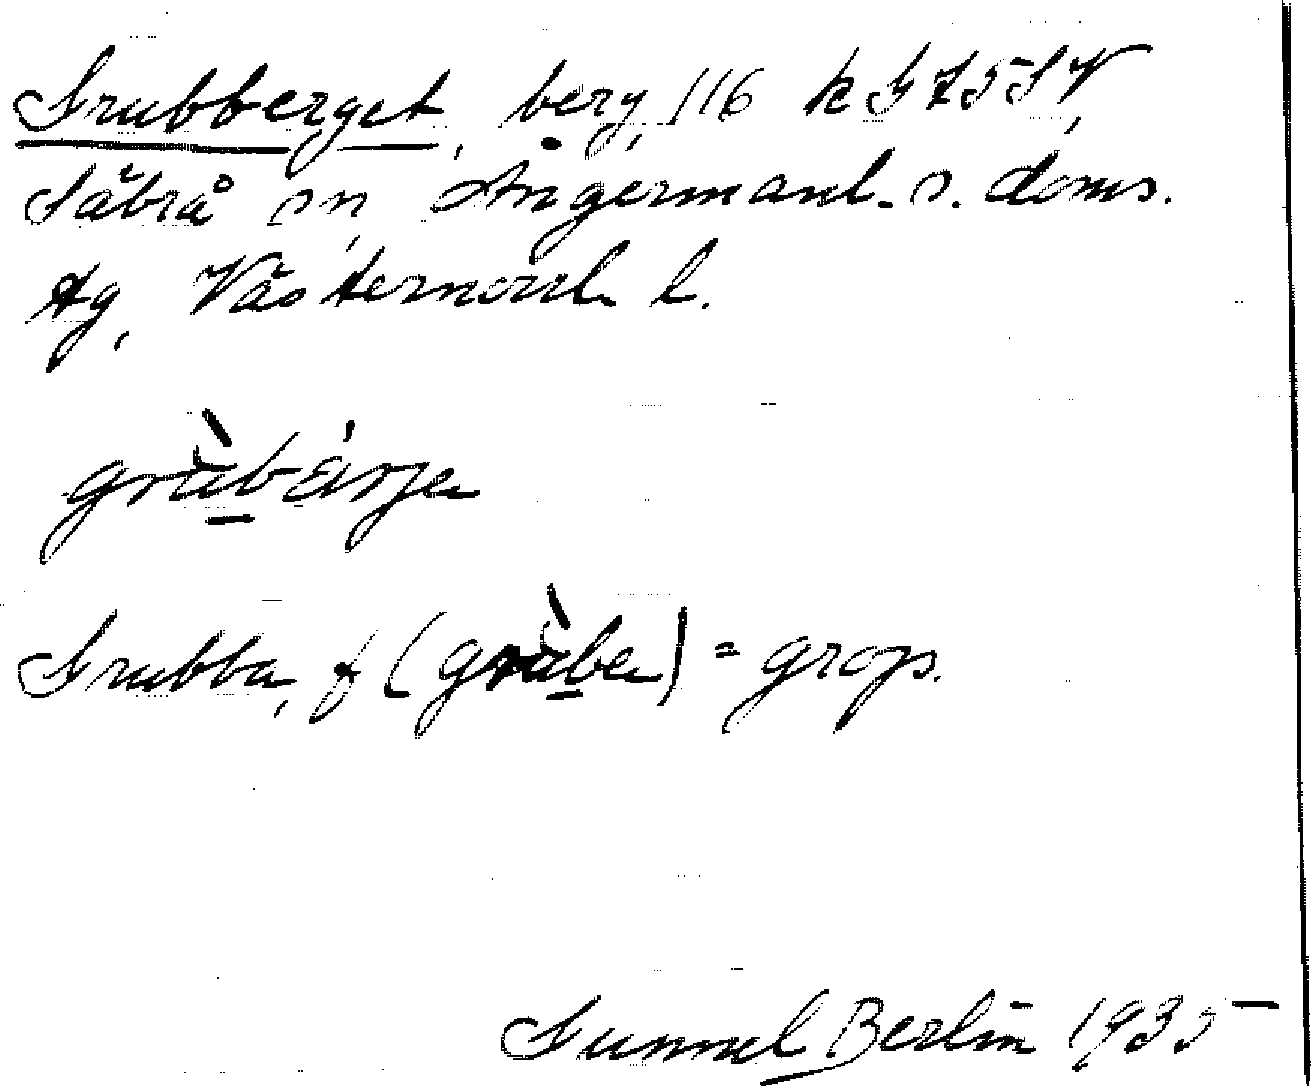 Grubberget, berg, 116 k G 7 5 S V,
Säbrå sn, Ångermanl. s. doms.
tg, Västernorrl. l.
grùbǽrje
Grubba, f (grùbe) = grop.
Gunnel Berlin 1935